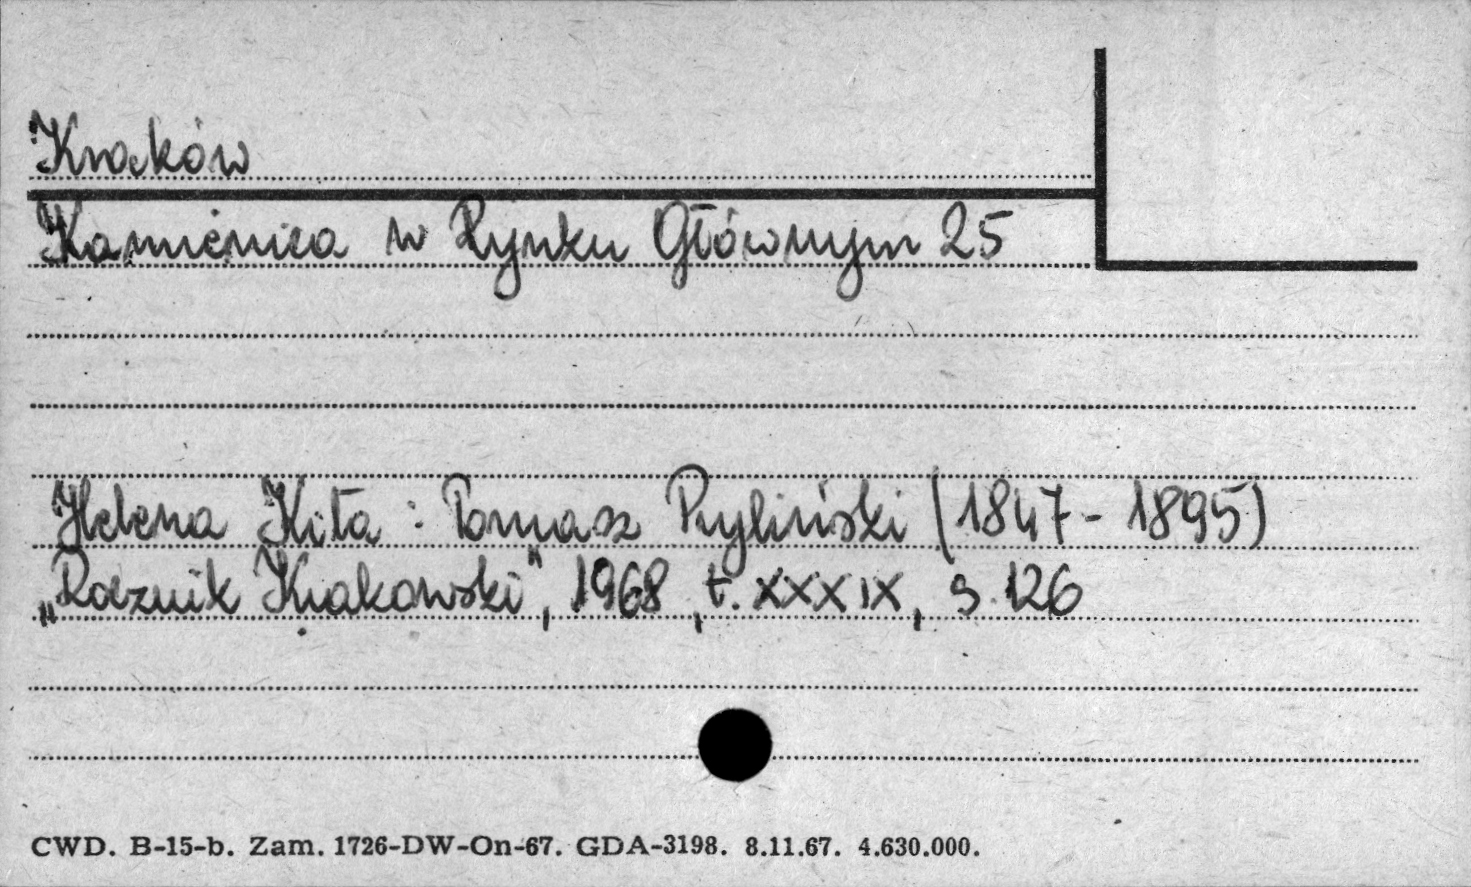 Kraków
Kamienica w Rynku Głównym 25
Helena Kita: Tomasz Pryliński (1847-1895)
„Rocznik Krakowski", 1968, t. XXXIX, s. 126
CWD. B-15-b. Zam. 1726-DW-On-67. GDA-3198. 8.11.67. 4.630.000.